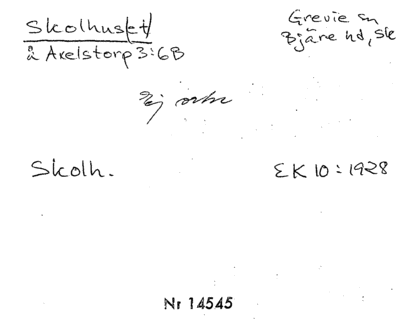 Skolhuset
å Axelstorp 3:6B
Grevie sn
Bjäre hd, Sk
Ej ortn
Skolh.
EK 10:1928
Nr 14545